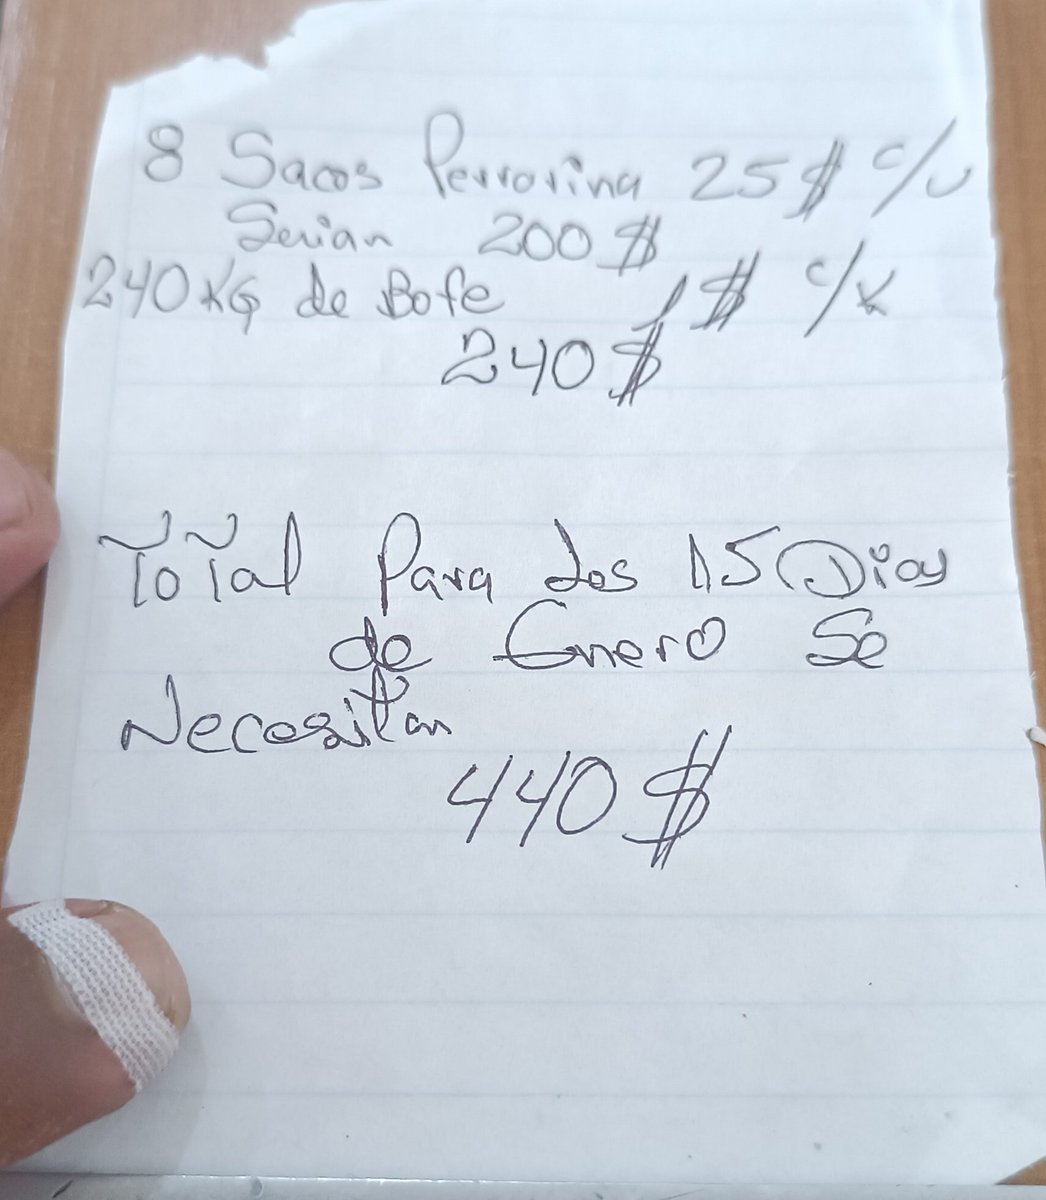 8 Sacos Perrorina 25$ c/u
Serian 200$
240KG de Bofe 1$ c/K
240$
Total Para los 15 Dias
de Enero Se
Necesitan
440$